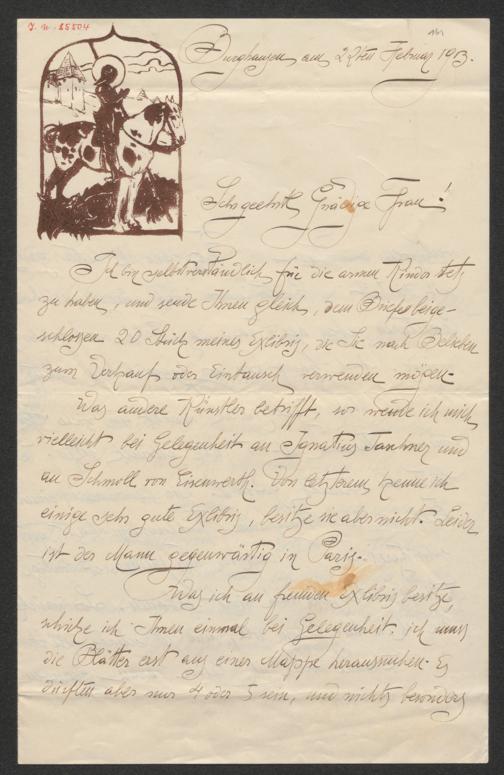 J. N. 85504
Burghausen am 22ten Februar 1913.
Sehr geehrte Gnädige Frau!
Ich bin selbstverständlich für die armen Kinder stets
zu haben, und sende Ihnen gleich, dem Briefe beige-
schlossen 20 Stück meines Exlibris, die Sie nach Belieben
zum Verkauf oder Eintausch verwenden mögen.
Was andere Künstler betrifft, so werde ich mich
vielleicht bei Gelegenheit an Ignatius Taschner und
an Schmoll von Eisenwerth. Von letzterem kenne ich
einige sehr gute Exlibris, besitze sie aber nicht. Leider
ist der Mann gegenwärtig in Paris.
Was ich an fremden Exlibris besitze,
schicke ich Ihnen einmal bei Gelegenheit, ich muss
die Blätter erst aus einer Mappe heraussuchen. Es
dürften aber nur 4 oder 5 sein, und nichts besonders